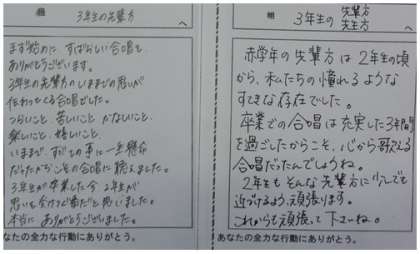 組 3年生の先輩方 へ
まず始めに、すばらしい合唱を
ありがとうございます。
3年生の先輩方のいままでの思いが
伝わってくる合唱でした。
つらいこと、苦しいこと かなしいこと、
楽しいこと、嬉しいこと、
いままで、すべての事に一生懸命
だったからこその合唱に聴えました。
3年生が卒業した今、2年生が
思いを受けつぐ番だと思いました。
本当に ありがとうございました。
なたの全力な行動にありがとう。
組 3年生の 先輩方 先生方 へ
赤学年の先輩方は2年生の頃
から、私たちの憧れるような
すてきな存在でした。
卒業での合唱は充実した3年間
を過ごしたからこそ、心から歌える
合唱だったんでしょうね。
2年もそんな先輩方に少しでも
近づけるよう、頑張ります。
これからも頑張って下さいね。
あなたの全力な行動にありがとう。